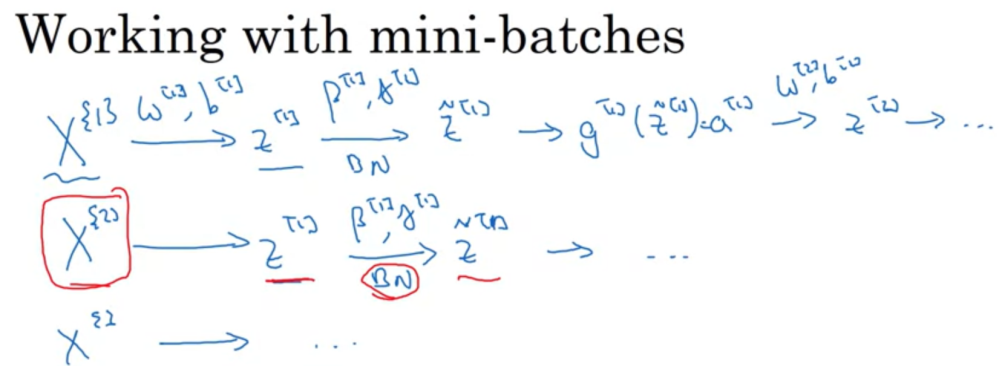 Working with mini-batches
X^{1} W^[1], b^[1] → z^[1] β^[1], γ^[1] → BN z̃^[1] → g^[1](z̃^[1]) = a^[1] W^[2], b^[2] → z^[2] → ...
X^{2} → z^[1] β^[1], γ^[1] → BN z̃^[1] → ...
X^{3} → ...